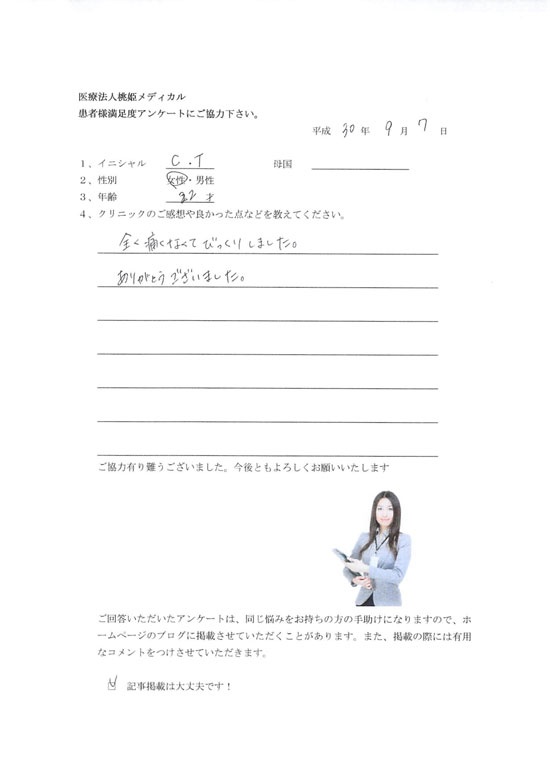 医療法人桃姫メディカル
患者様満足度アンケートにご協力下さい。
平成 30 年 9 月 7 日
1、イニシャル C.T 母国
2、性別 女性・男性
3、年齢 22 才
4、クリニックのご感想や良かった点などを教えてください。
全く痛くなくてびっくりしました。
ありがとうございました。
ご協力有り難うございました。今後ともよろしくお願いいたします
ご回答いただいたアンケートは、同じ悩みをお持ちの方の手助けになりますので、ホ
ームページのブログに掲載させていただくことがあります。また、掲載の際には有用
なコメントをつけさせていただきます。
記事掲載は大丈夫です！